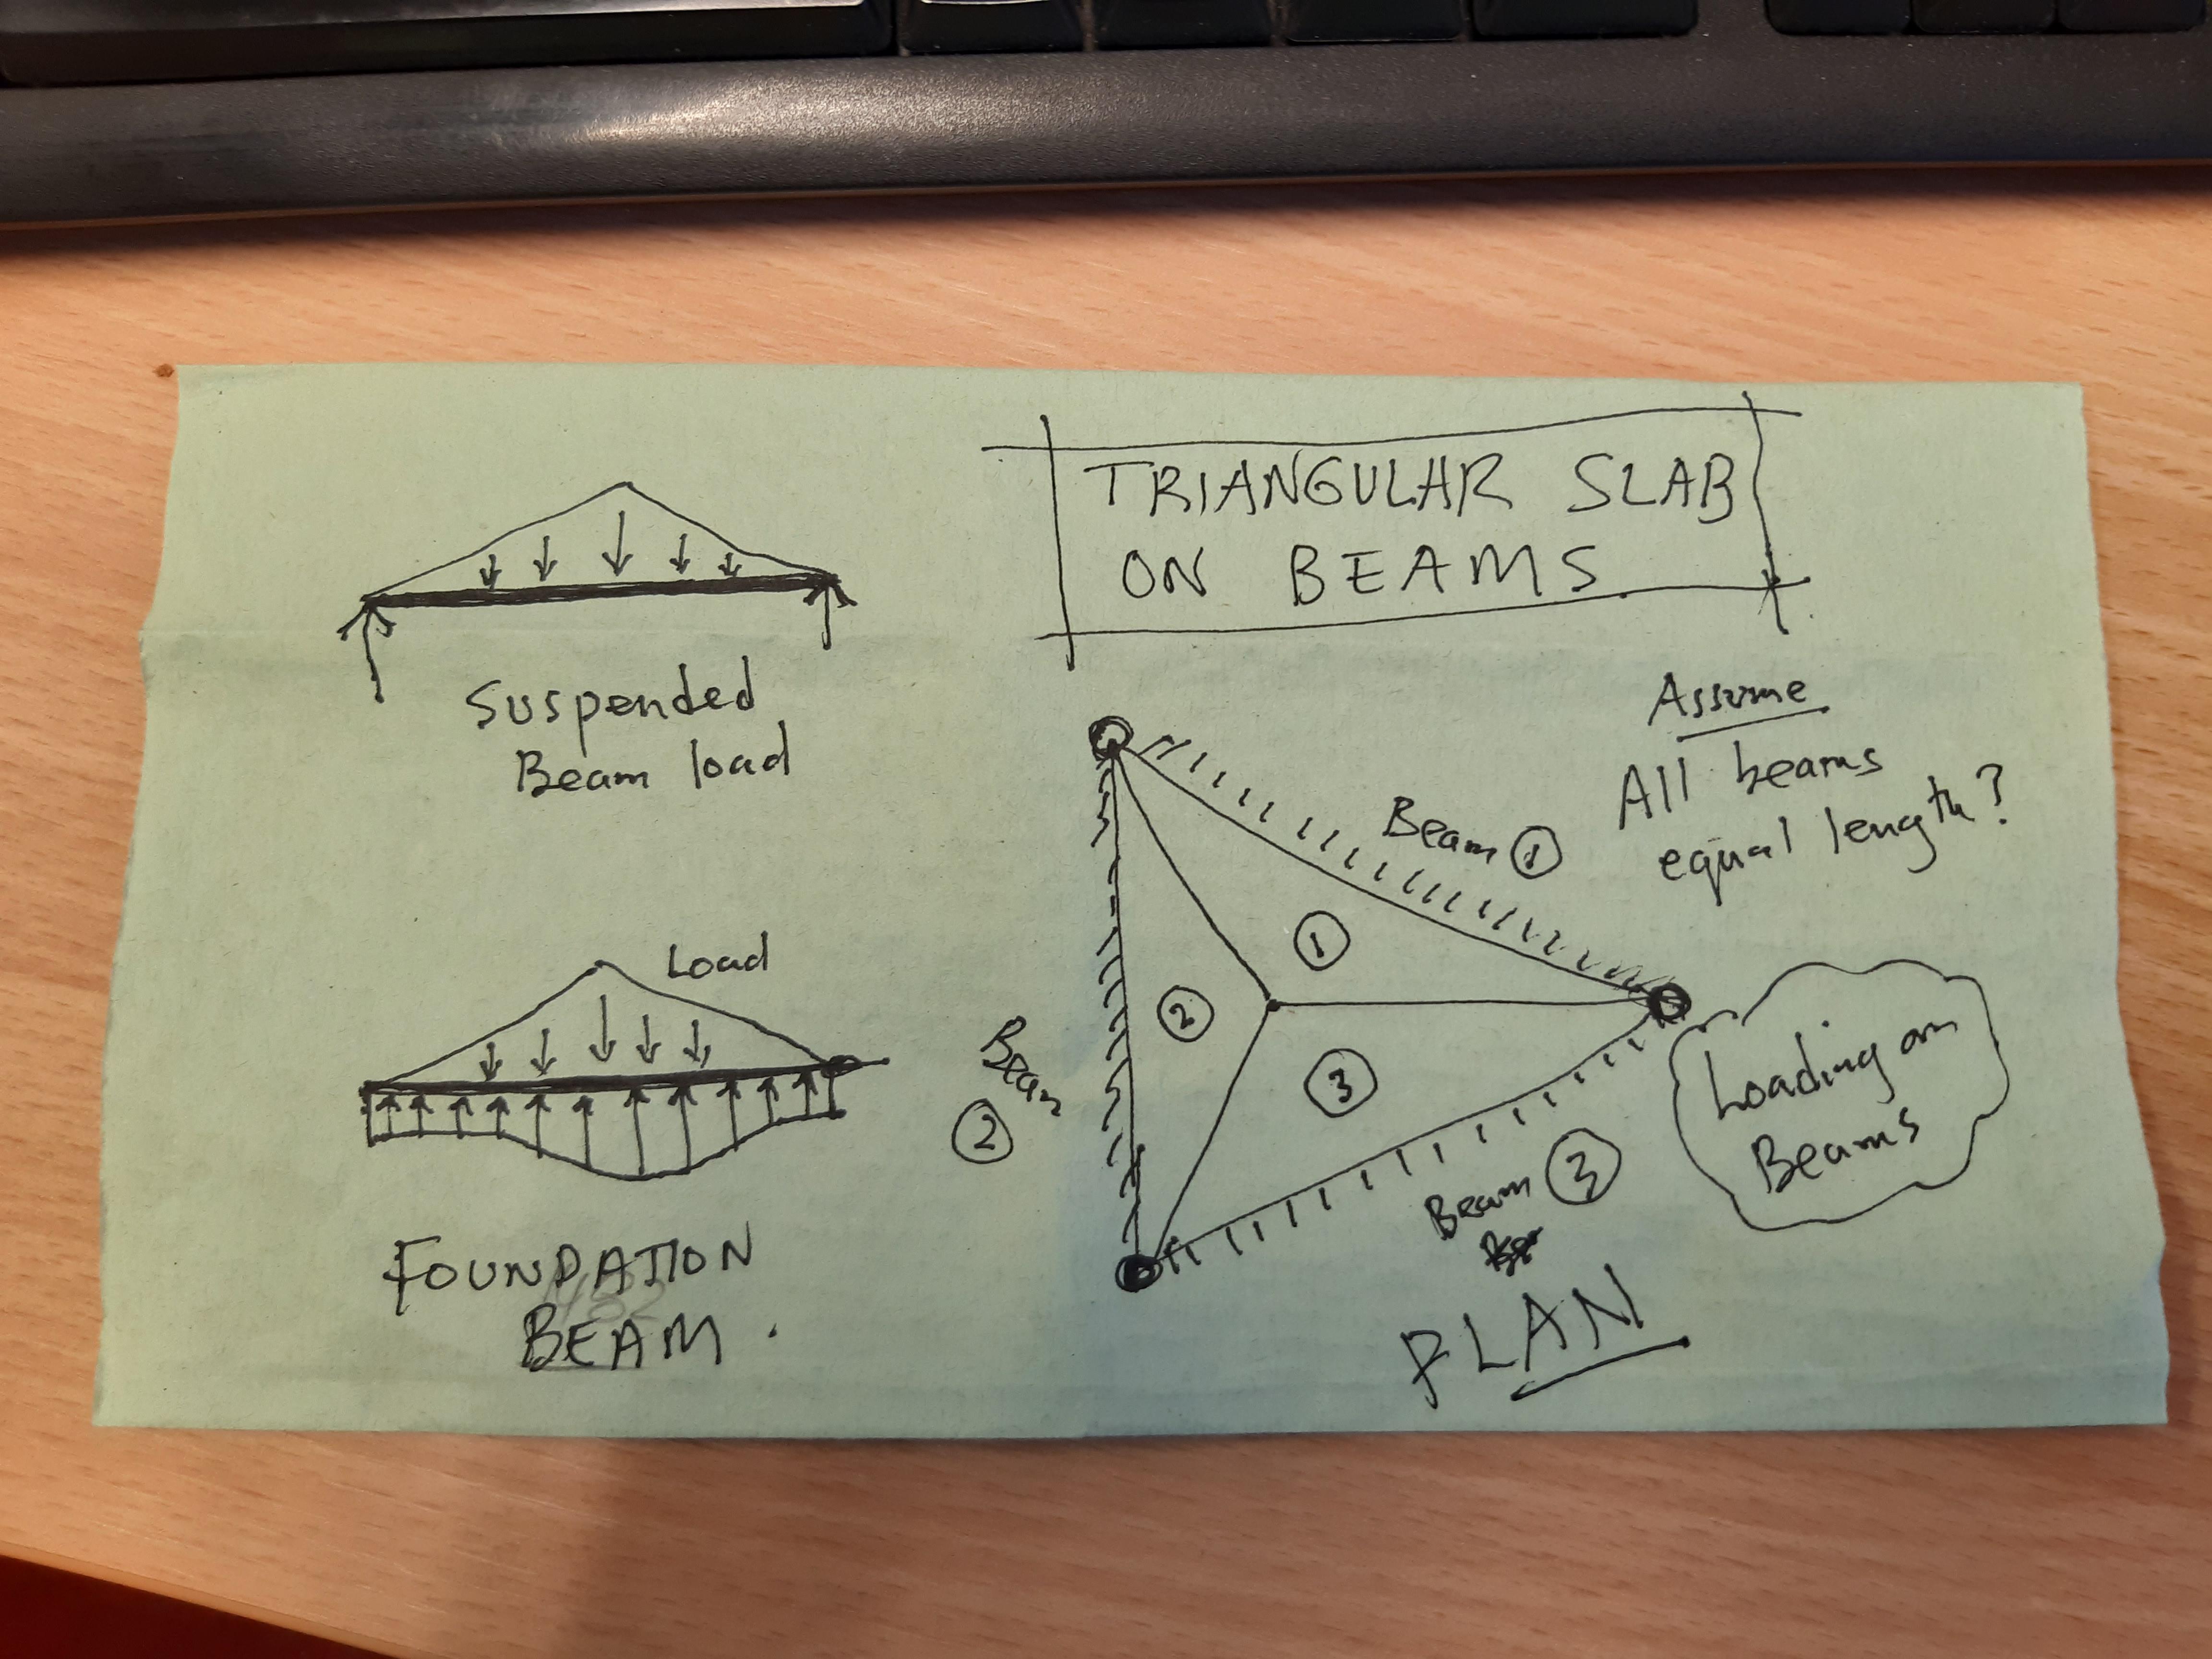 TRIANGULAR SLAB
ON BEAMS
Suspended
Beam load
Assume
All beams
equal length?
Beam ①
①
②
③
Beam
②
Beam ③
Loading on
Beams
PLAN
Load
FOUNDATION
BEAM.